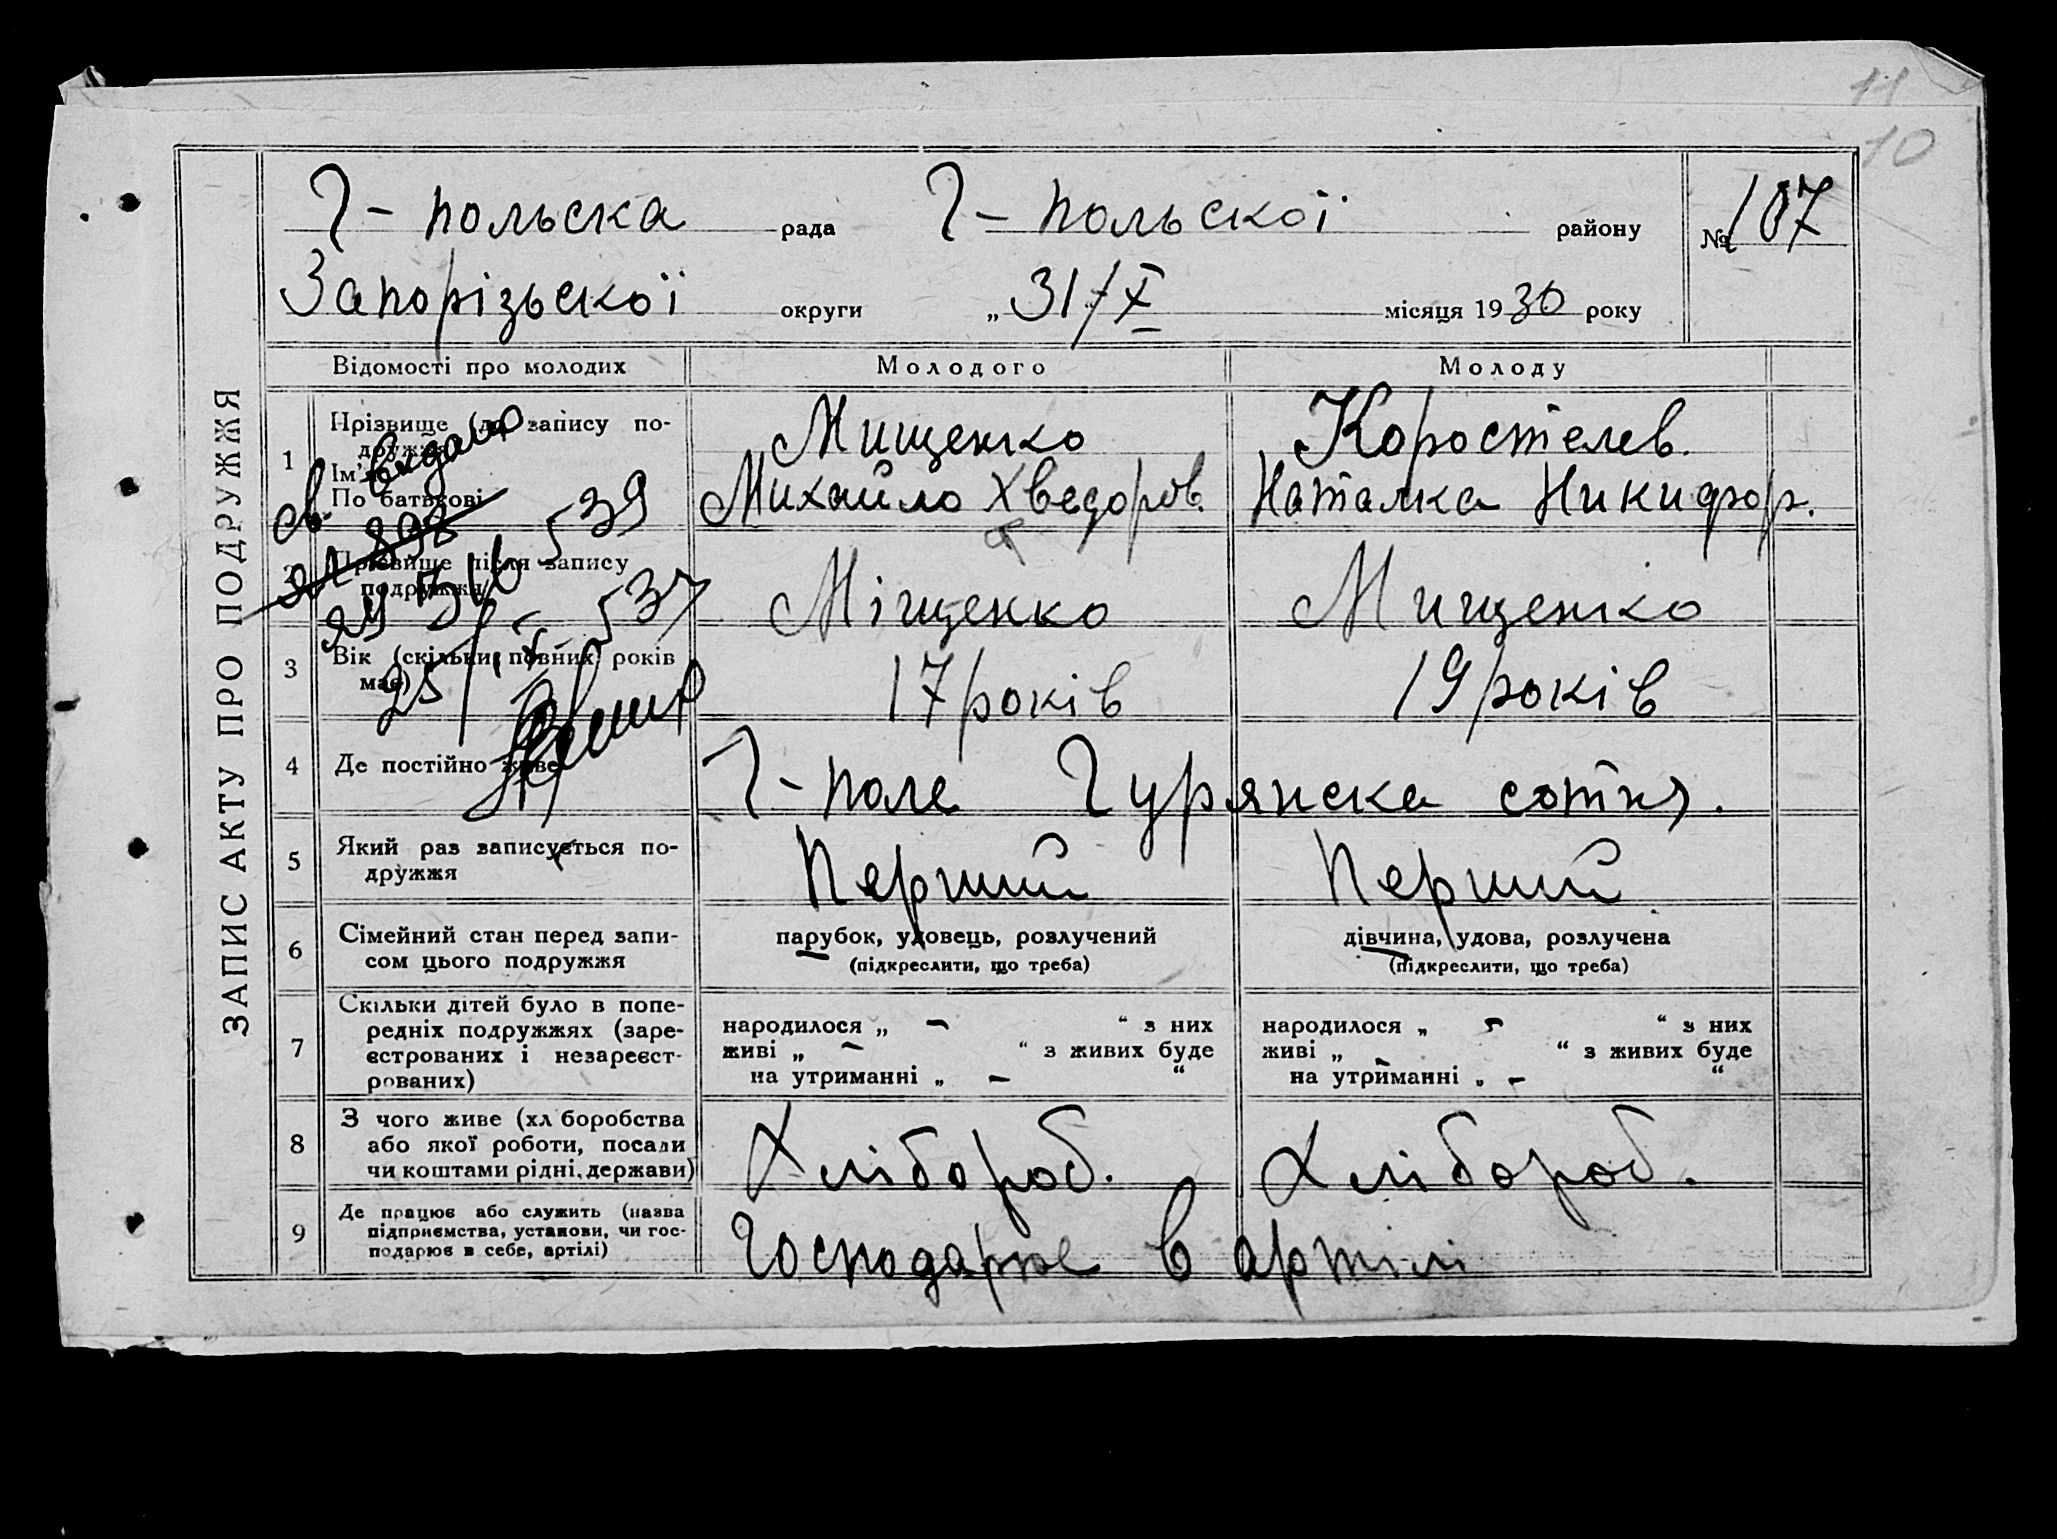 11
10
ЗАПИС АКТУ ПРО ПОДРУЖЖЯ
Г-польска рада Г-польскої району № 107
Запорізьскої округи „31/X місяця 1930 року
Відомості про молодих Молодого Молоду
1 Прізвище до запису подружжя
Ім'я
По батькові
Мищенко
Михайло Хведоров.
Коростелев.
Наталка Никифор.
2 Прізвище після запису подружжя
Міщенко
Мищенко
3 Вік (скільки повних років має)
17 років
19 років
4 Де постійно живе
Г-поле Гурянска сотня.
5 Який раз записується по-
дружжя
Перший
Перший
6 Сімейний стан перед запи-
сом цього подружжя
парубок, удовець, розлучений
(підкреслити, що треба)
дівчина, удова, розлучена
(підкреслити, що треба)
7 Скільки дітей було в попе-
редніх подружжях (заре-
єстрованих і незареєст-
рованих)
народилося „ – “ з них
живі „ – “ з живих буде
на утриманні „ – “
народилося „ – “ з них
живі „ – “ з живих буде
на утриманні „ – “
8 З чого живе (хл боробства
або якої роботи, посади
чи коштами рідні, держави)
Хлібороб.
Хлібороб.
9 Де працює або служить (назва
підприємства, установи, чи гос-
подарює в себе, артілі)
Господарює в артілі
св. видано
539
25/X 537